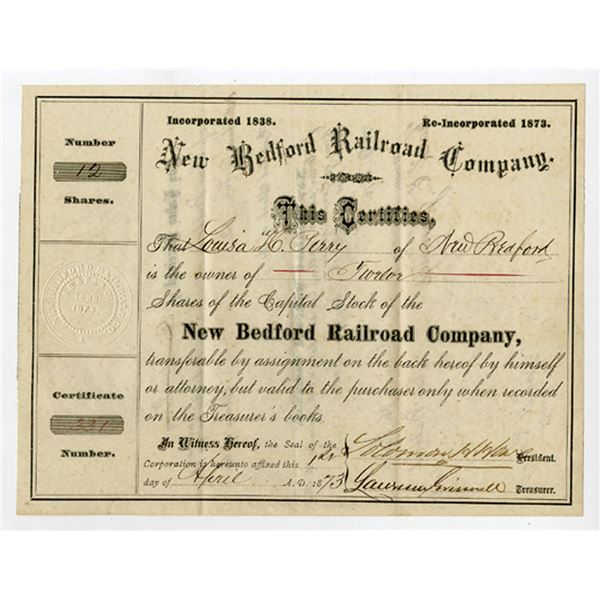 Incorporated 1838. Re-Incorporated 1873.
New Bedford Railroad Company.
This Certifies,
That Louisa H. Perry of New Bedford
is the owner of Twelve
Shares of the Capital Stock of the
New Bedford Railroad Company,
transferable by assignment on the back hereof by himself
or attorney, but valid to the purchaser only when recorded
on the Treasurer's books.
In Witness Hereof, the Seal of the
Corporation is hereunto affixed this 1st
day of April A.D. 1873
President.
Lawrence Grinnell Treasurer.
Number
12
Shares.
1838
1873
Certificate
331
Number.